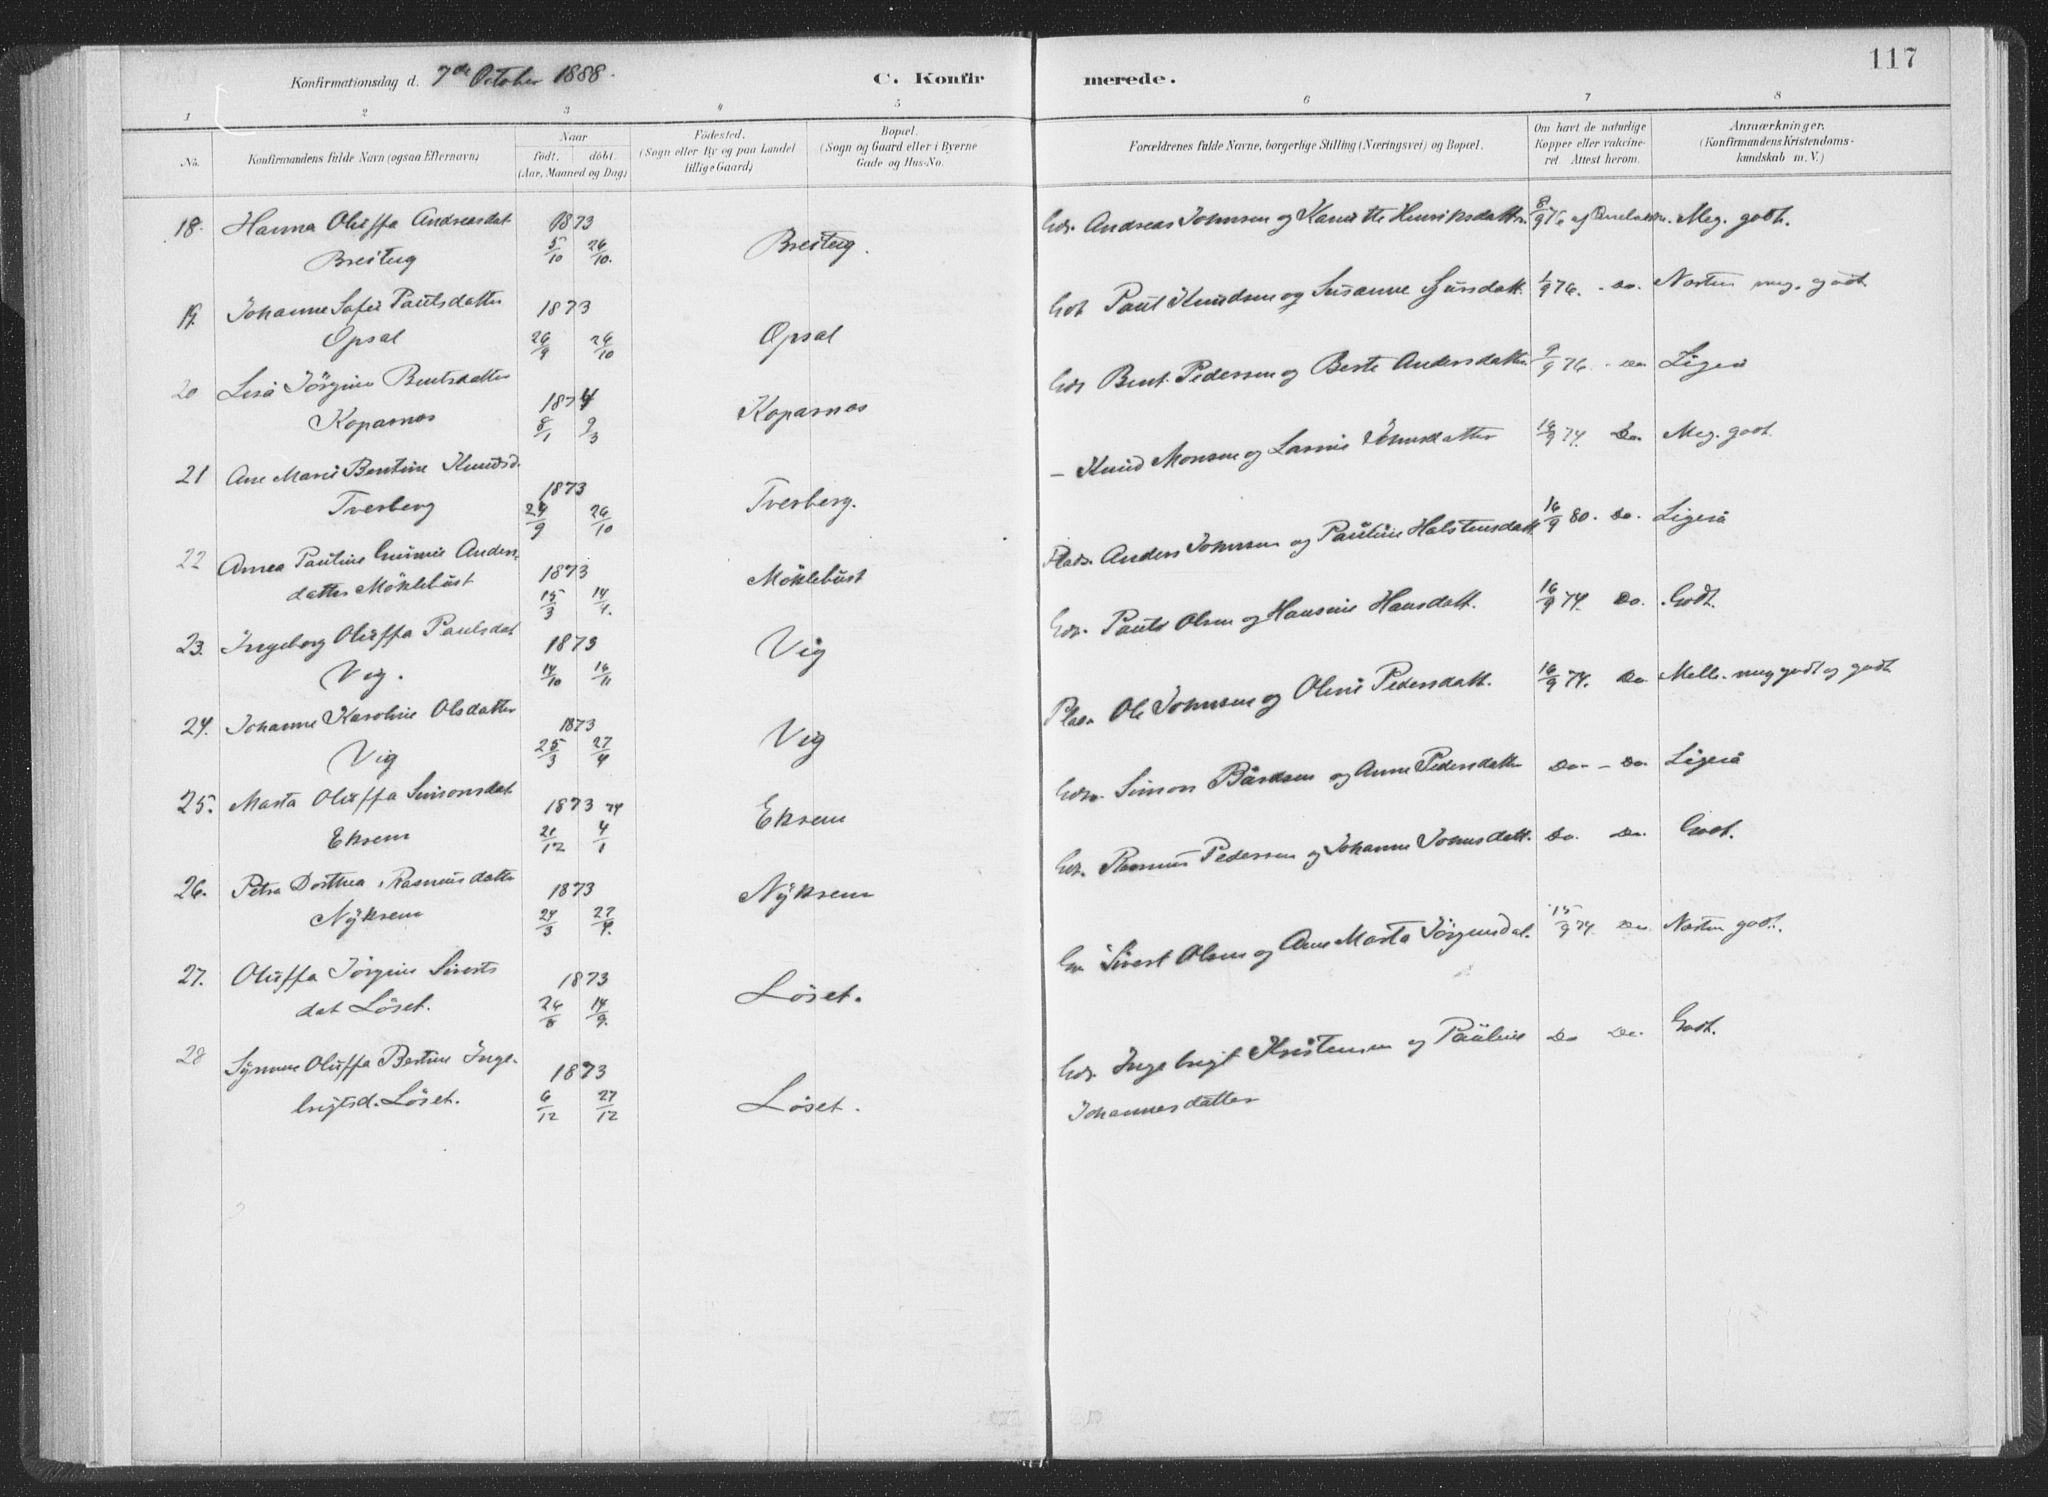 117
Konfirmationsdag d. 7de October 1888.
C. Konfirmerede.
1 2 3 4 5 6 7 8
No.
Konfirmandens fulde Navn (ogsaa Efternavn)
Naar
født. døbt.
(Aar, Maaned og Dag)
Fødested.
(Sogn eller By og paa Landet
tillige Gaard)
Bopæl.
(Sogn og Gaard eller i Byerne
Gade og Hus-No.
Forældrenes fulde Navne, borgerlige Stilling (Næringsvei) og Bopæl.
Om havt de naturlige
Kopper eller vakcine-
ret. Attest herom.
Anmærkninger.
(Konfirmandens Kristendoms-
kundskab m. V.)
18. Hanna Oluffa Andreasdat 1873 Gdr. Andreas Johnsen og Henriksdatter 8/9 76 af Meg. godt.
Breiteig 5/10 26/10. Breiteig.
19. Johanne Sofie Paulsdatter 1873 Paul Knudsen og Susanne 1/9 76. - Do. Næsten meg. godt
Opsal 26/9 26/10 Opsal
20 Jörgine Bentsdatter 1874 Gdr Bent Pedersen og Berte Andersdatter 9/9 76. - Do Ligeså
Koparnes 8/1 9/3 Koparnes
21 Ane Marie Bentine Knudsd. 1873 - Knud Monsen og Johnsdatter 16/9 74. Do. Meg. godt.
Tverberg 24/9 26/10 Tverberg.
22 Pauline Anders- 1873 Plads. Anders Johnsen og Pauline Halstensdatt 16/9 80. Do. Ligeså
datter Möklebust 15/3 14/4. Möklebust
23. Ingeborg Oluffa Paulsdat 1873 Gdr. Olsen og Hansine Hansdatt. 16/9 74. Do. Godt.
Vig. 14/10 16/11 Vig
24. Johanne Karoline Olsdatter 1873 Plads Ole Johnsen og Oline Pedersdatt. 16/9 74. Do Mell. meg godt og godt
Vig 25/3 27/4 Vig
25. Marta Oluffa Simonsdat 1873 74 Gdr. Simon Bårdsen og Anne Pedersdatter Do. - Do Ligeså
Eksem 21/12 4/1 Eksem
26. Petra Dorthea Rasmusdatter 1873 Gdr. Rasmus Pedersen og Johanne Johnsdatt. Do. Do. Godt.
Nyksem 24/3 27/4. Nyksem
27. Oluffa Jörgine Siverts 1873 Sivert Olsen og Ane Marta Jörgensdat. 15/9 74. Do. Næsten godt.
dat Löset. 26/8 14/9. Löset.
28 Synnøve Oluffa Bertine Inge- 1873 Gdr. Ingebrigt Kristensen og Pauline Do Do. Godt.
brigtsd. Löset. 6/12 27/12 Löset. Johannesdatter